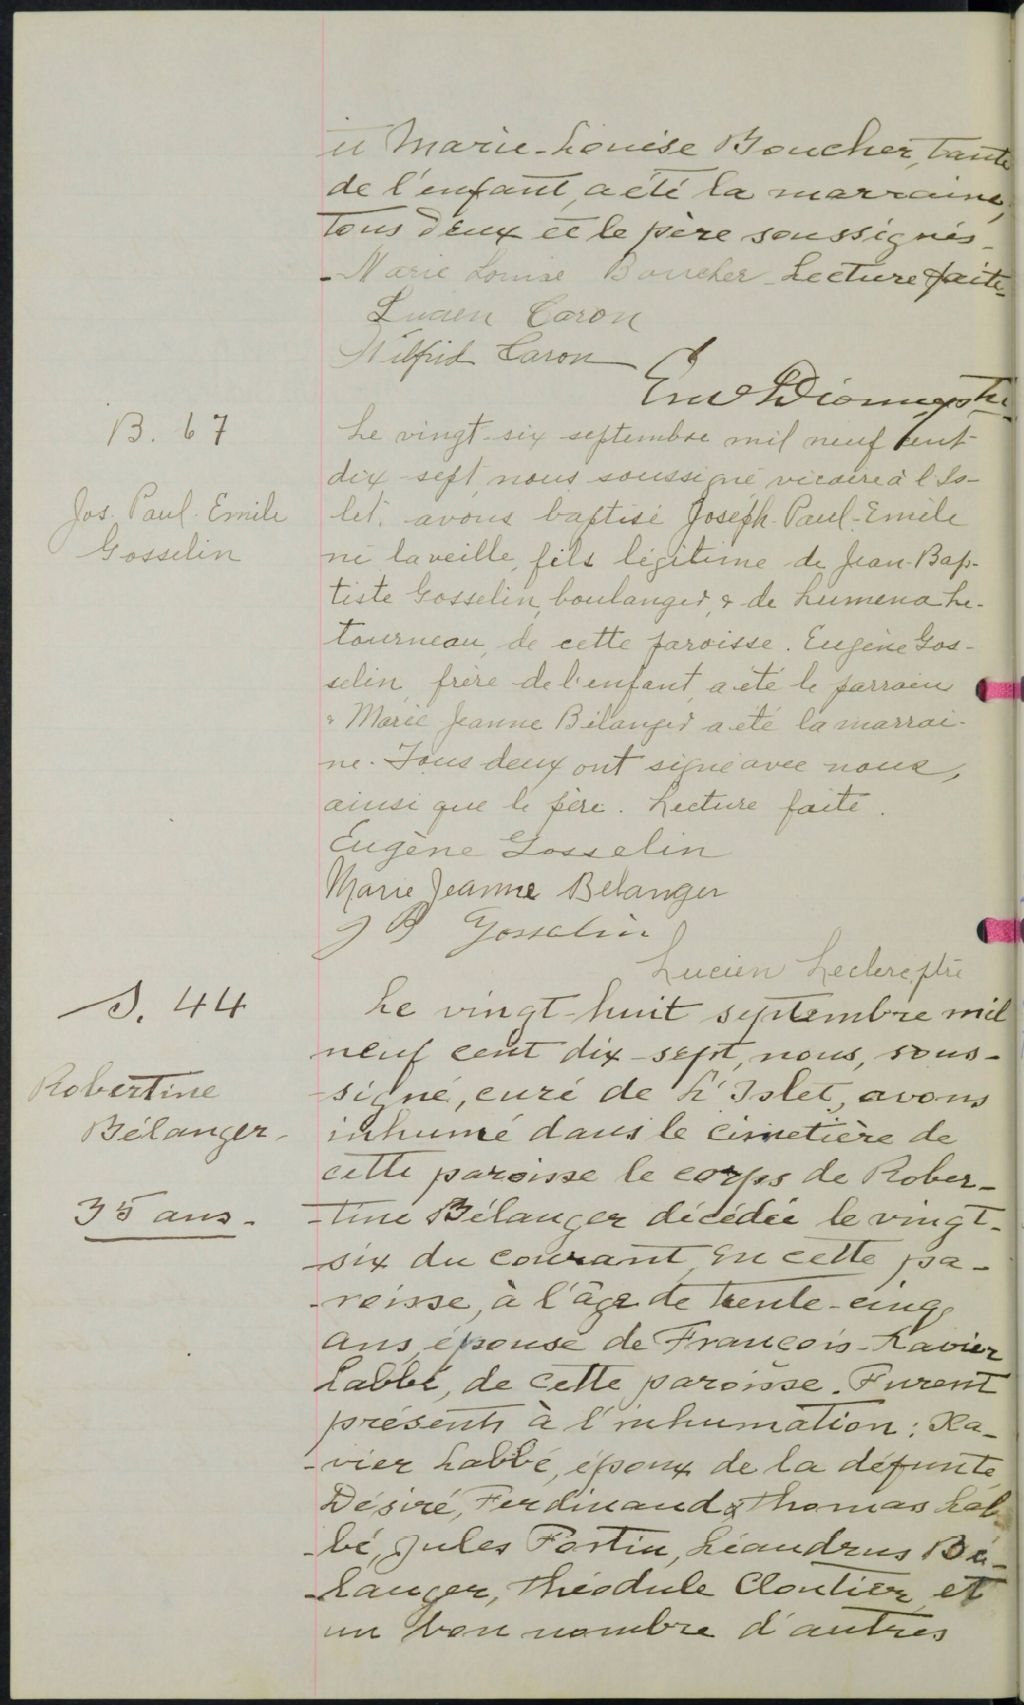 et Marie-Louise Boucher, tante
de l'enfant, a été la marraine,
tous deux et le père soussignés.
- Marie Louise Boucher - Lecture faite -
Lucien Caron
Wilfrid Caron
Dionne, Ptre
B. 67
Jos. Paul-Emile
Gosselin
Le vingt-six septembre mil neuf cent-
dix-sept, nous soussigné vicaire à l'Is-
let, avons baptisé Joseph-Paul-Emile
né la veille, fils légitime de Jean-Bap-
tiste Gosselin, boulanger, & de Lumena Le-
tourneau, de cette paroisse. Eugène Gos-
selin, frère de l'enfant, a été le parrain
& Marie Jeanne Bélanger a été la marrai-
ne. Tous deux ont signé avec nous,
ainsi que le père. Lecture faite.
Eugène Gosselin
Marie Jeanne Bélanger
J B Gosselin
Lucien Leclerc, ptre
S. 44
Robertine
Bélanger -
35 ans -
Le vingt-huit septembre mil
neuf cent dix-sept, nous, sous-
-signé, curé de L'Islet, avons
inhumé dans le cimetière de
cette paroisse le corps de Rober-
-tine Bélanger décédée le vingt-
-six du courant, en cette pa-
-roisse, à l'âge de trente-cinq
ans, épouse de François-Xavier
Labbé, de cette paroisse. Furent
présents à l'inhumation: Xa-
-vier Labbé, époux de la défunte,
Désiré, Ferdinand & Thomas Lab-
-bé, Jules Fortin, Léandrus Bé-
-langer, Théodule Cloutier, et
un bon nombre d'autres